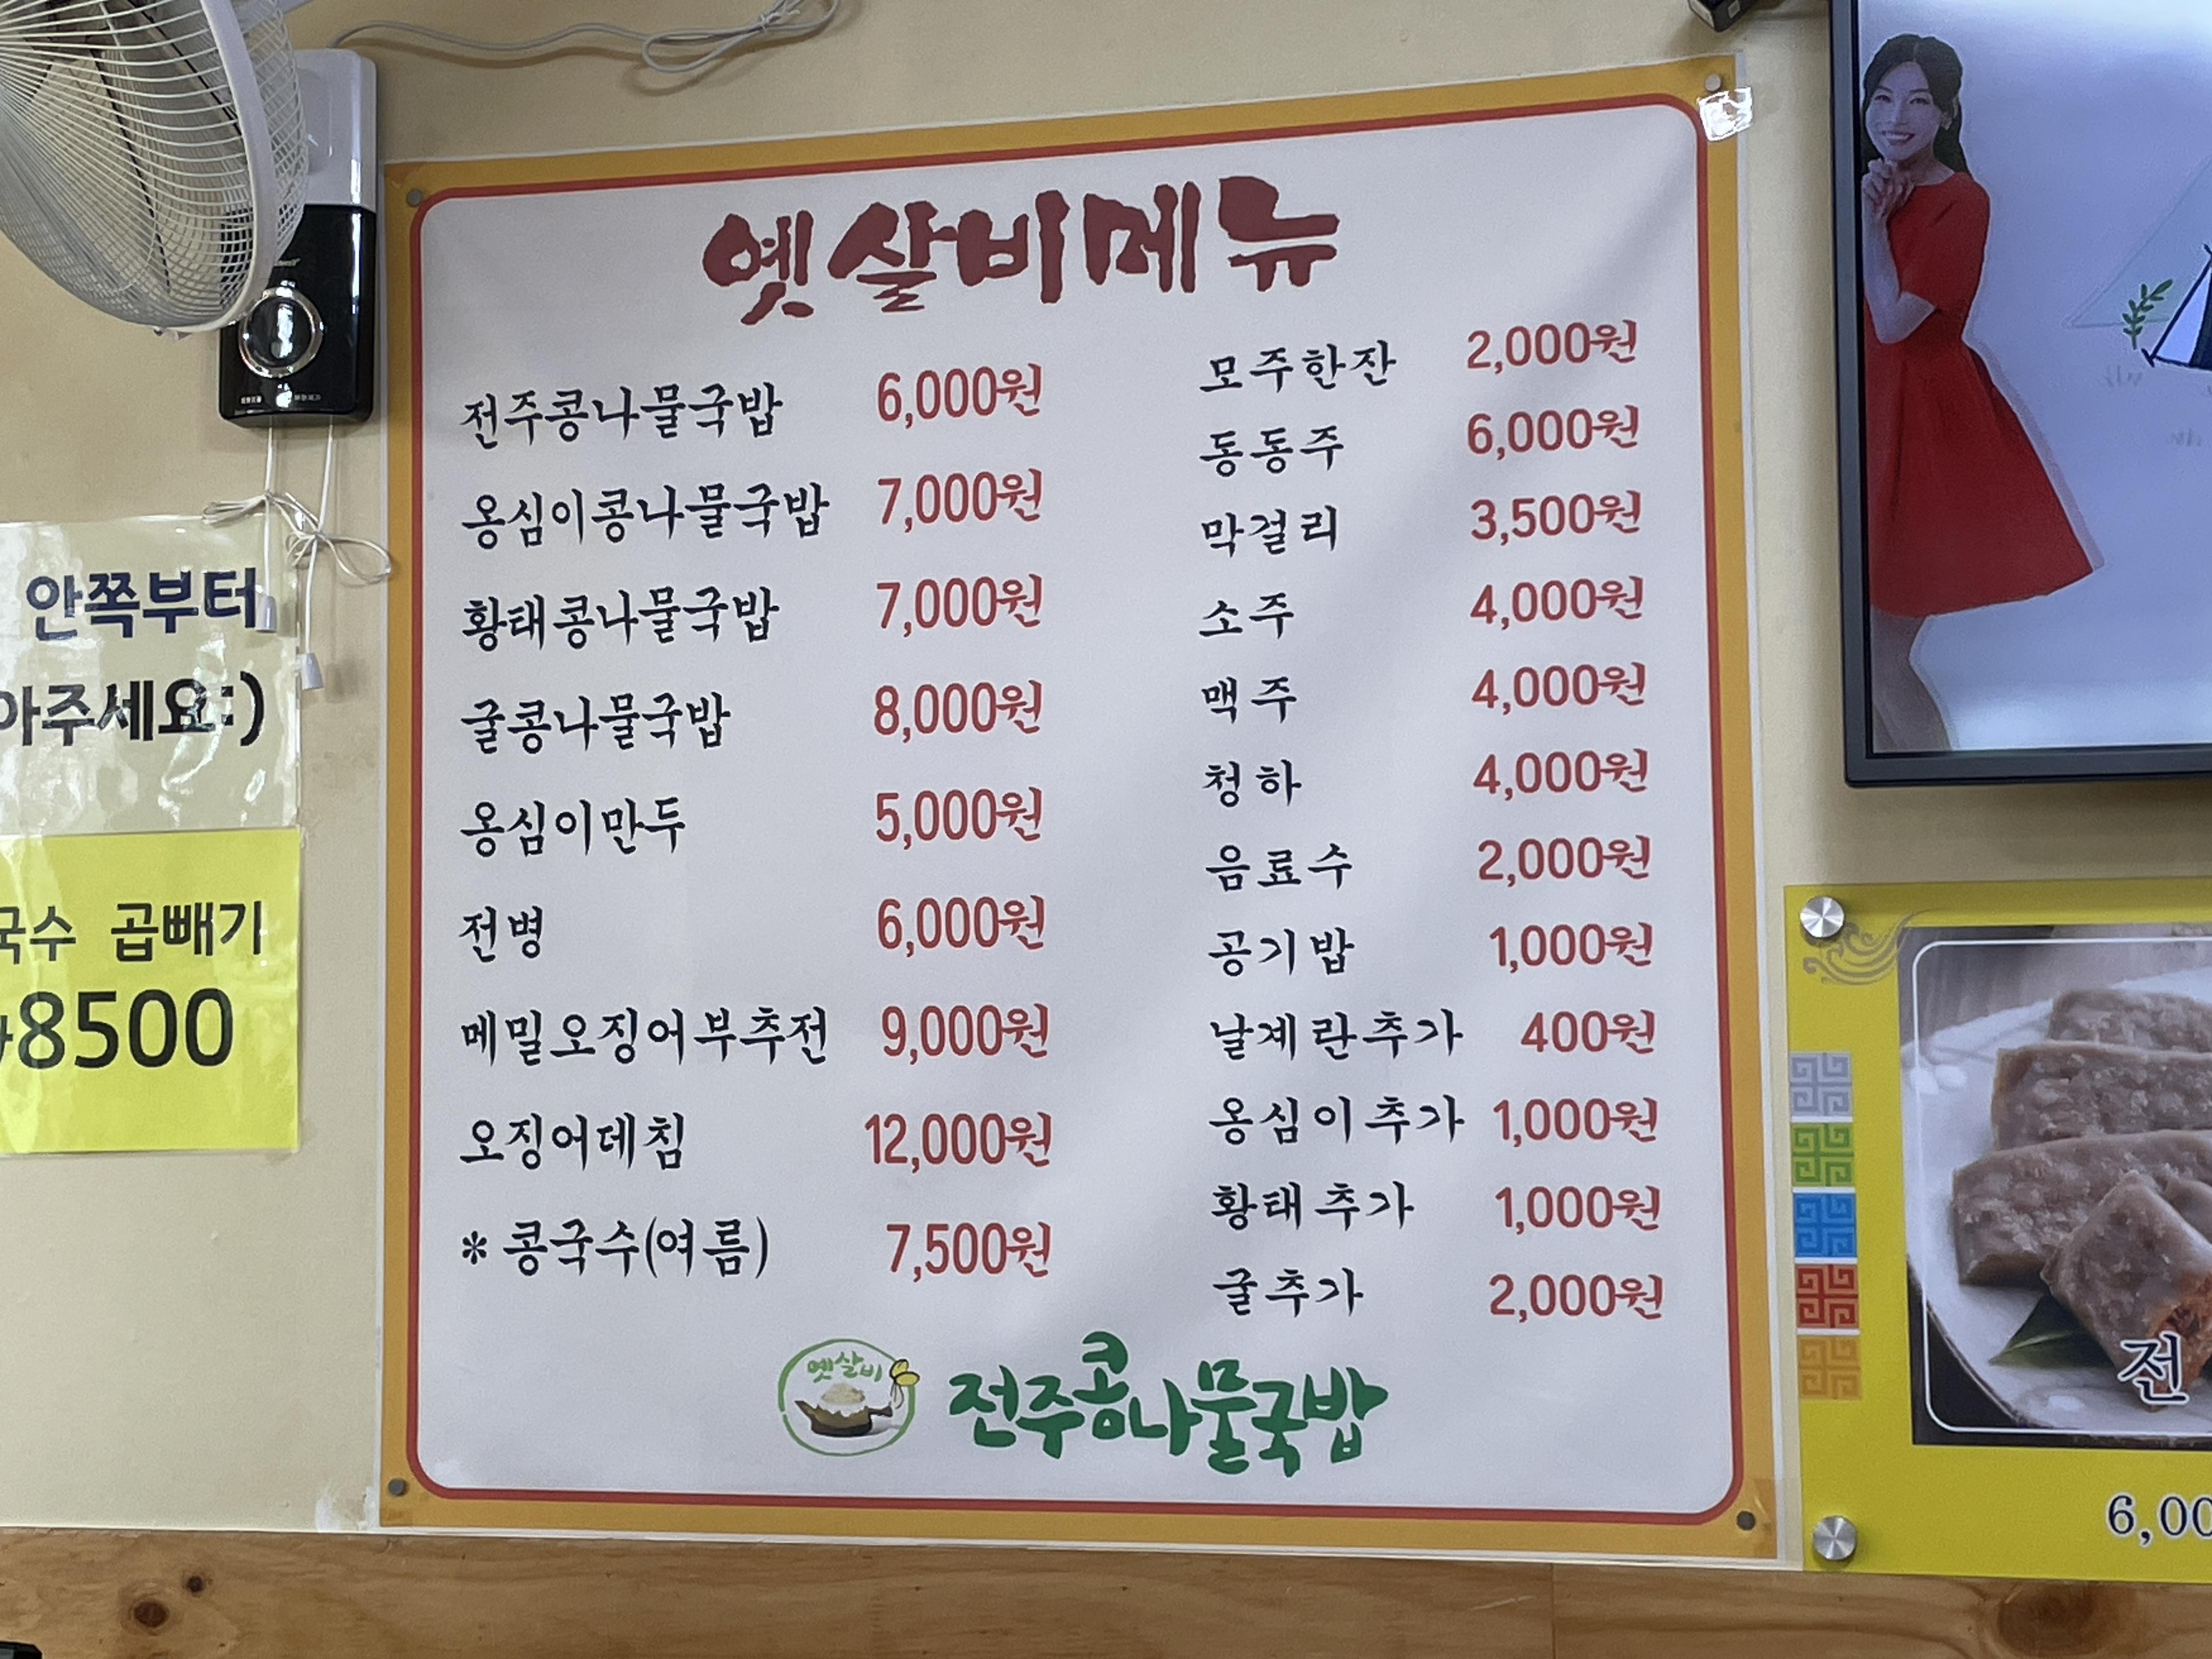 옛살비메뉴
전주콩나물국밥 6,000원
옹심이콩나물국밥 7,000원
황태콩나물국밥 7,000원
굴콩나물국밥 8,000원
옹심이만두 5,000원
전병 6,000원
메밀오징어부추전 9,000원
오징어데침 12,000원
* 콩국수(여름) 7,500원
모주한잔 2,000원
동동주 6,000원
막걸리 3,500원
소주 4,000원
맥주 4,000원
청하 4,000원
음료수 2,000원
공기밥 1,000원
날계란추가 400원
옹심이추가 1,000원
황태추가 1,000원
굴추가 2,000원
옛살비
전주콩나물국밥
안쪽부터
아주세요:)
국수 곱빼기
8500
전
6,00